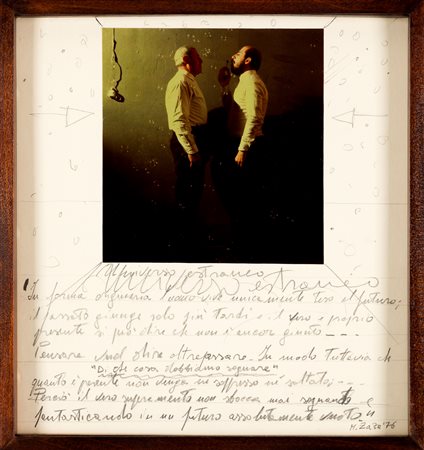 Universo estraneo
universo estraneo
In forma originaria l'uomo vive unicamente teso al futuro;
il passato giunge solo più tardi e il vero e proprio
presente si può dire che non è ancor giunto - - -
Pensare vuol dire oltrepassare. In modo tuttavia che
"Di che cosa dobbiamo sognare"
quanto è presente non venga né soppresso né saltato; - - -
Perciò il vero superamento non sbocca mai sognando e
fantasticando in un futuro assolutamente vuoto
M. Zaza '76